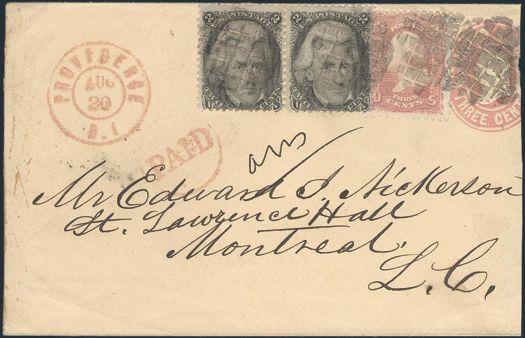 PROVIDENCE
AUG
20
R.I
PAID
U.S. POSTAGE
U.S. POSTAGE
TWO CENTS
TWO CENTS
THREE CENT
ans
Mr Edward J. Nickerson
St. Lawrence Hall
Montreal,
L.C.